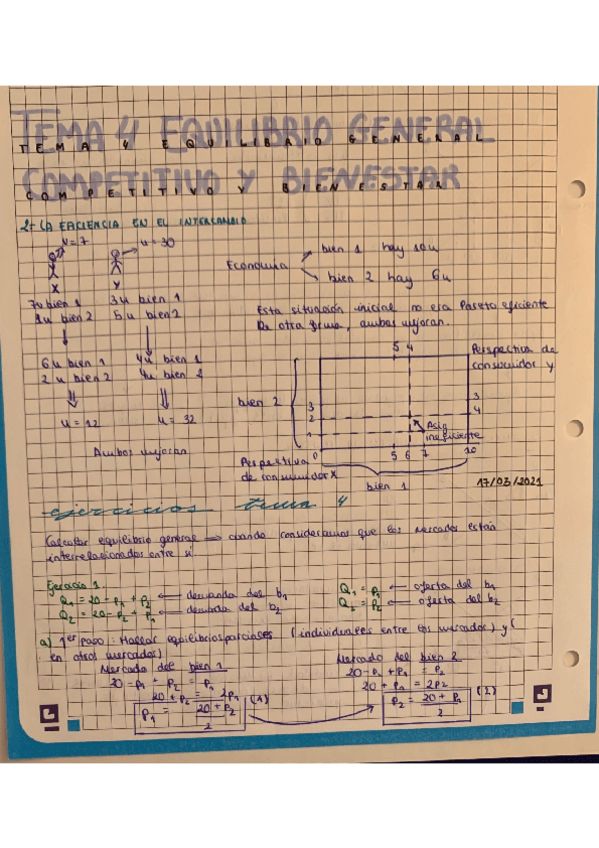 TEMA 4 EQUILIBRIO GENERAL
COMPETITIVO Y BIENESTAR
TEMA 4 EQUILIBRIO GENERAL
COMPETITIVO Y BIENESTAR
2- LA EFICIENCIA EN EL INTERCAMBIO
U=7 u=30
X Y
7u bien 1 3u bien 1
1u bien 2 5u bien 2
6u bien 1 4u bien 1
2u bien 2 4u bien 2
u=12 u=32
Ambos mejoran
Economía
bien 1 hay 10u
bien 2 hay 6u
Esta situación inicial no era Pareto eficiente
De otra forma, ambos mejoran.
5 4
Perspectiva de
consumidor y
bien 2
3 3
2 4
1
Asig
ineficiente
0 5 6 7 10
Perspectiva
de consumidor X
bien 1
17/03/2021
ejercicios tema 4
Calcular equilibrio general → cuando consideramos que los mercados están
interrelacionados entre sí
Ejercicio 1
Q1 = 20 - P1 + P2 ← demanda del b1
Q2 = 20 - P2 + P1 ← demanda del b2
Q1 = P1 ← oferta del b1
Q2 = P2 ← oferta del b2
a) 1er paso: Hallar equilibrios parciales (individuales entre los mercados) y (
en otros mercados)
Mercado del bien 1
20 - P1 + P2 = P1
20 + P2 = 2P1
P1 = 20 + P2 / 2 (1)
Mercado del bien 2
20 - P2 + P1 = P2
20 + P1 = 2P2
P2 = 20 + P1 / 2 (2)